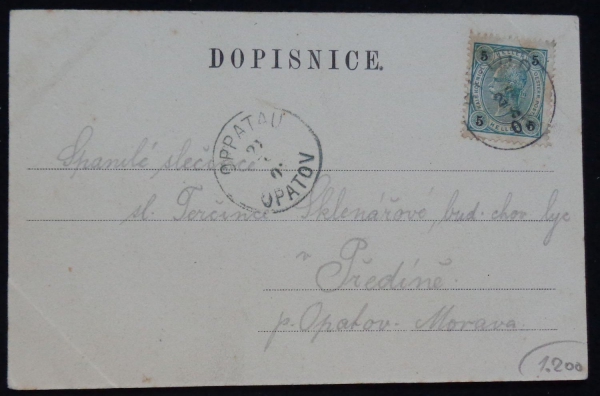 DOPISNICE.
5 5
5 5
OPPATAU
OPATOV
Spanilé slečince
sl. Terčince Sklenářové, bud. chov.
v
Předíně.
p. Opatov. Morava.
1.200